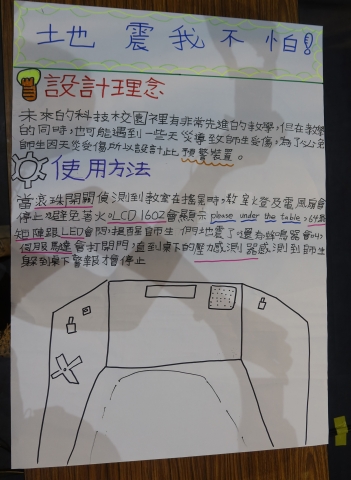 地震我不怕!
設計理念
未來的科技校園裡有非常先進的教學,但在教學
的同時,也可能遇到一些天災導致師生受傷,為了以免
師生因天災受傷所以設計此預警裝置。
使用方法
當滾珠開關偵測到教室在搖晃時,教室火登及電風扇會
停止,避免著火LCD1602會顯示please under the table,64點
矩陣跟LED會閃,提醒師生們地震了還有蜂鳴器會叫,
伺服馬達會打開門,直到桌下的壓力感測器感測到師生
躲到桌下警報才會停止